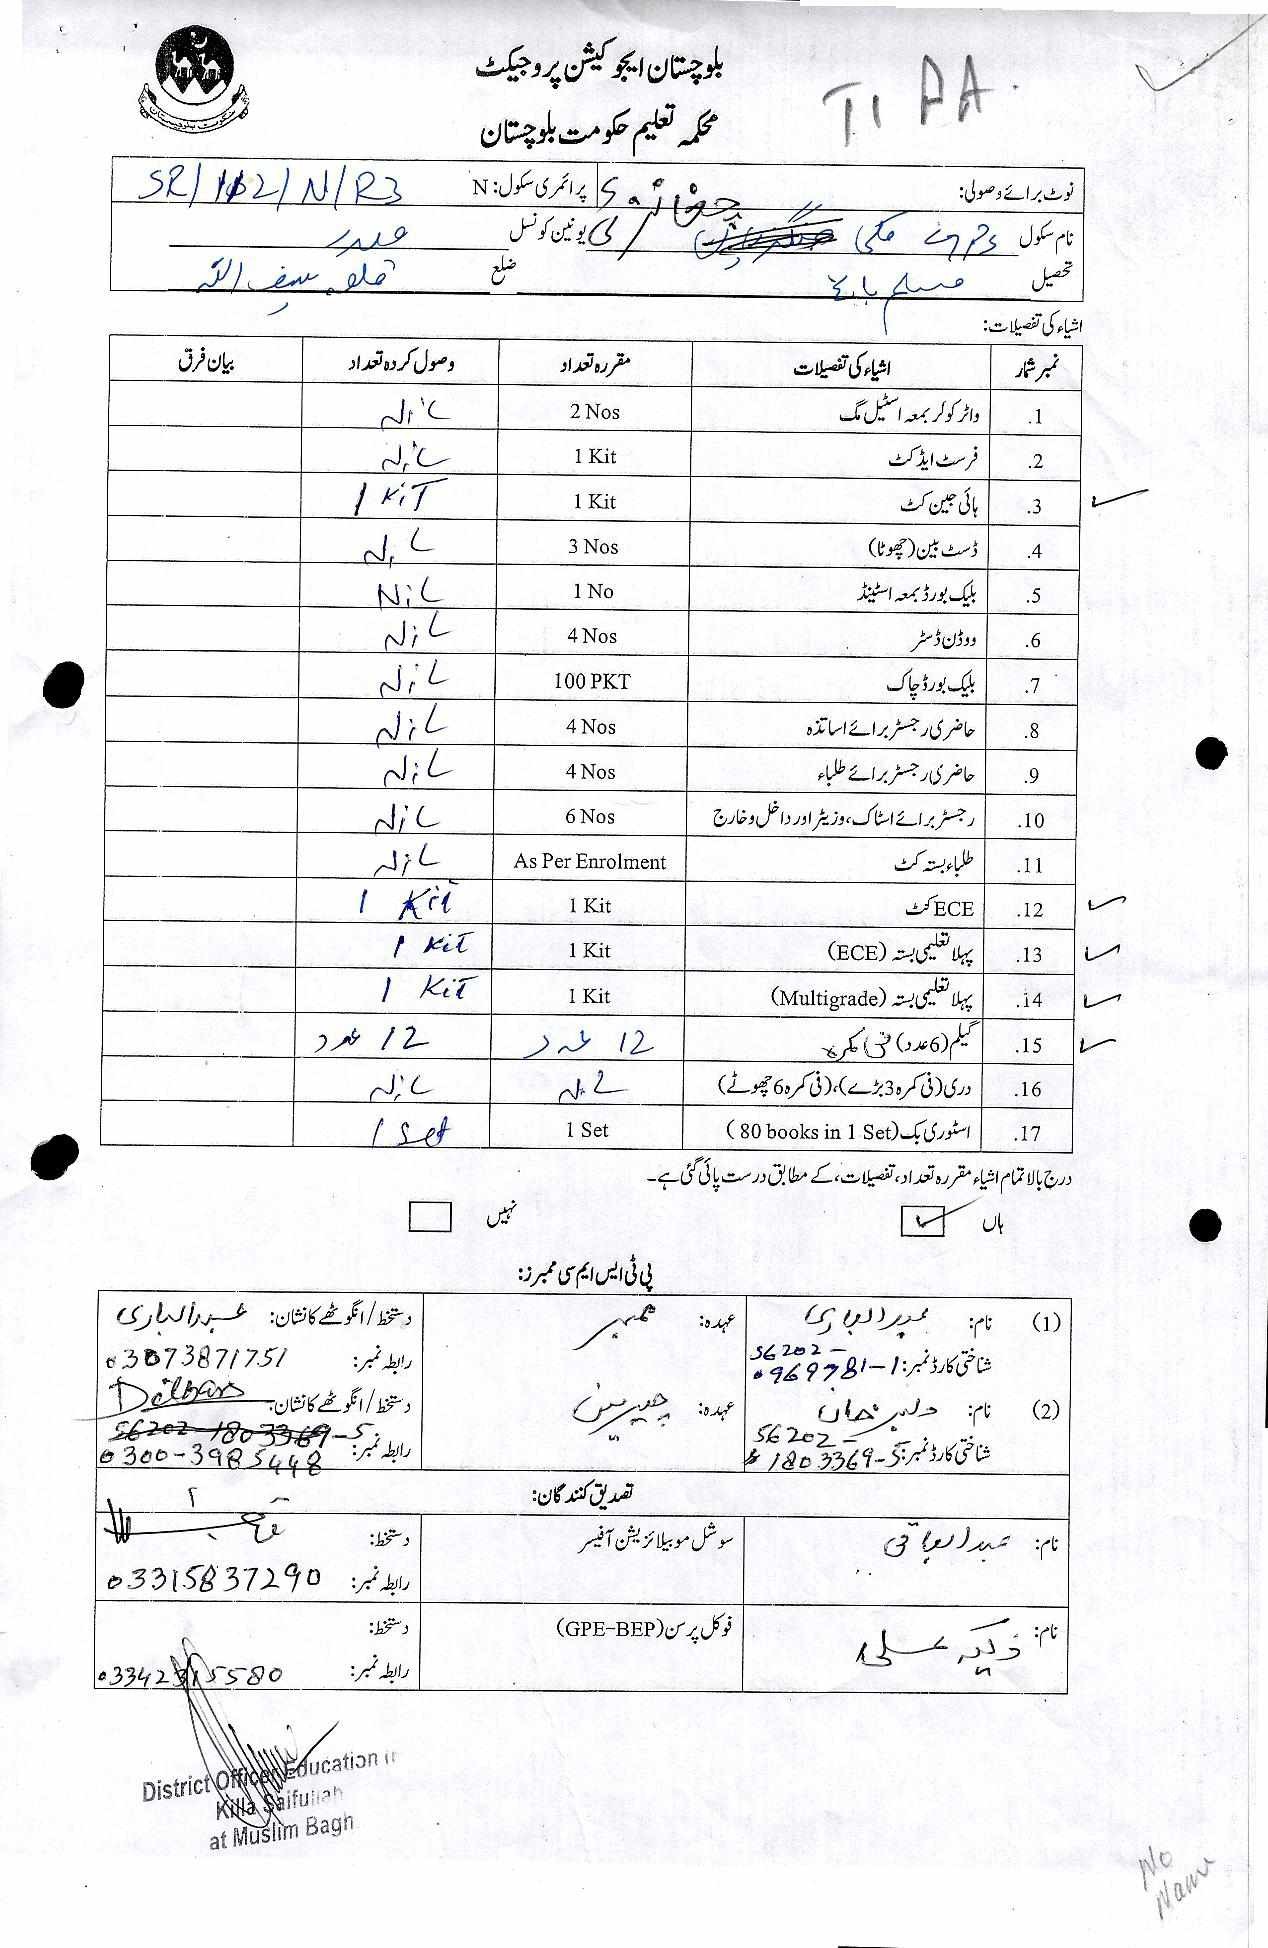 بلوچستان ایجوکیشن پروجیکٹ
TI PA
محکمہ تعلیم حکومت بلوچستان
نوٹ برائے وصولی: پرائمری سکول: N SR/112/N/R3
نام سکول یونین کونسل
تحصیل مسلم باغ ضلع قلعہ سیف اللہ
اشیاء کی تفصیلات:
نمبر شمار اشیاء کی تفصیلات مقررہ تعداد وصول کردہ تعداد بیان فرق
1. واٹر کولر بمعہ اسٹیل مگ 2 Nos Nil
2. فرسٹ ایڈ کٹ 1 Kit Nil
3. ہائی جین کٹ 1 Kit 1 KiT
4. ڈسٹ بین (چھوٹا) 3 Nos Nil
5. بلیک بورڈ بمعہ اسٹینڈ 1 No Nil
6. ووڈن ڈسٹر 4 Nos Nil
7. بلیک بورڈ چاک 100 PKT Nil
8. حاضری رجسٹر برائے اساتذہ 4 Nos Nil
9. حاضری رجسٹر برائے طلباء 4 Nos Nil
10. رجسٹر برائے اسٹاک، وزیٹر اور داخل و خارج 6 Nos Nil
11. طلباء بستہ کٹ As Per Enrolment Nil
12. ECE کٹ 1 Kit 1 Kit
13. پہلا تعلیمی بستہ (ECE) 1 Kit 1 Kit
14. پہلا تعلیمی بستہ (Multigrade) 1 Kit 1 Kit
15. گیلم (6 عدد) فی کمرہ 12 عدد 12 عدد
16. دری (فی کمرہ 3 بڑے)، (فی کمرہ 6 چھوٹے) Nil Nil
17. اسٹوری بک (80 books in 1 Set) 1 Set 1 Set
درج بالا تمام اشیاء مقررہ تعداد، تفصیلات، کے مطابق درست پائی گئی ہے۔
ہاں نہیں
پی ٹی ایس ایم سی ممبرز:
(1) نام: عبدالباری عہدہ: ممبر دستخط / انگوٹھے کا نشان: عبدالباری
شناختی کارڈ نمبر: 56202-0969781-1 رابطہ نمبر: 03073871751
(2) نام: دلبر خان عہدہ: چیئرمین دستخط / انگوٹھے کا نشان: Dilbar
56202-1803369-5
شناختی کارڈ نمبر: 56202-1803369-5 رابطہ نمبر: 0300-3985448
تصدیق کنندگان:
نام: عبدالباقی سوشل موبیلائزیشن آفیسر دستخط:
رابطہ نمبر: 03315837290
نام: فوکل پرسن (GPE-BEP) دستخط:
رابطہ نمبر: 03342315580
District Officer Education
Killa Saifullah
at Muslim Bagh
No
Name